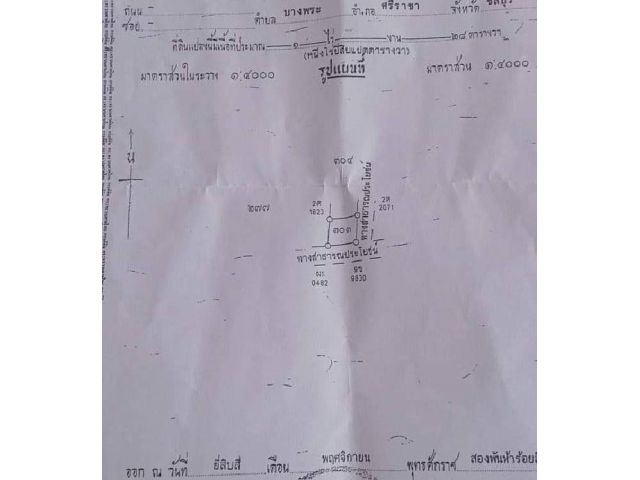 ถนน -
ซอย - ตำบล บางพระ อำเภอ ศรีราชา จังหวัด ชลบุรี
ที่ดินแปลงนี้มีเนื้อที่ประมาณ ๑ ไร่ - งาน ๒๘ ตารางวา
(หนึ่งไร่ยี่สิบแปดตารางวา)
มาตราส่วนในระวาง ๑:๔๐๐๐ รูปแผนที่ มาตราส่วน ๑:๔๐๐๐
น
๓๐๔
ทางสาธารณประโยชน์
๒๗๗
2ศ
1823
2ห
2071
๓๐๓
ทางสาธารณประโยชน์
ฌร
0482
9ช
9830
ออก ณ วันที่ ยี่สิบสี่ เดือน พฤศจิกายน พุทธศักราช สองพันห้าร้อย